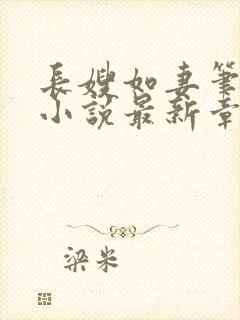 長嫂如妻筆
小說最新章
梁米